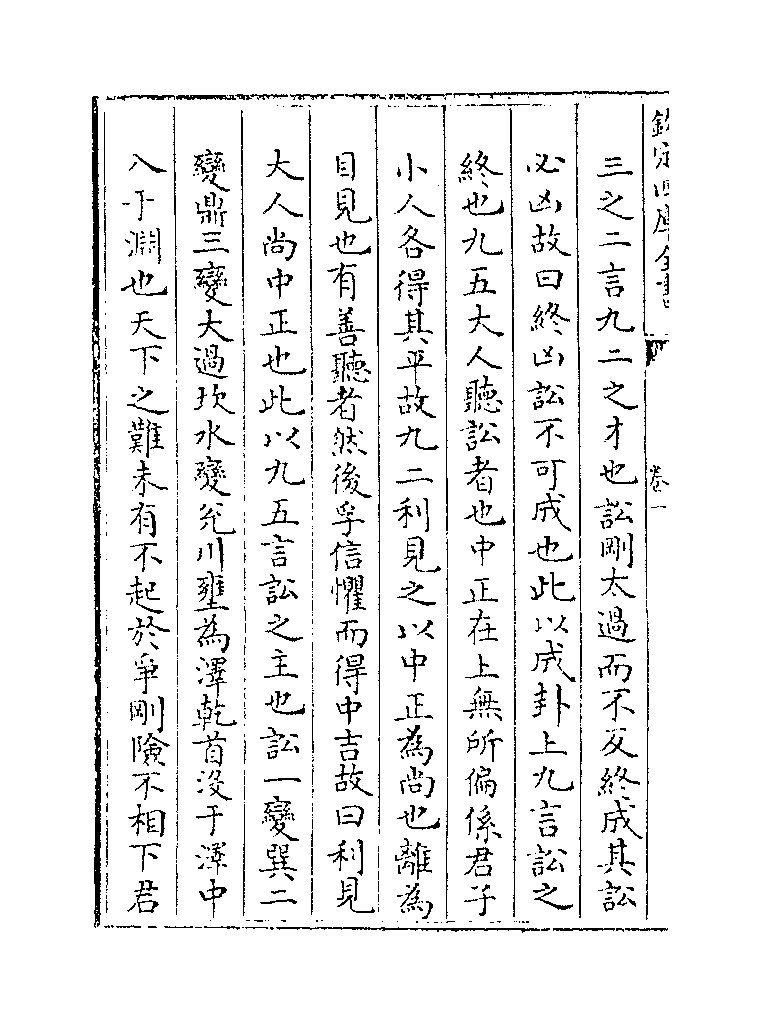 欽定四庫全書
卷一
三之二言九二之才也訟剛太過而不反終成其訟
必凶故曰終凶訟不可成也此以成卦上九言訟之
終也九五大人聽訟者也中正在上無所偏係君子
小人各得其平故九二利見之以中正為尚也離為
目見也有善聽者然後孚信懼而得中吉故曰利見
大人尚中正也此以九五言訟之主也訟一變巽二
變鼎三變大過坎水變兊川壅為澤乾首沒于澤中
入于淵也天下之難未有不起於爭剛險不相下君